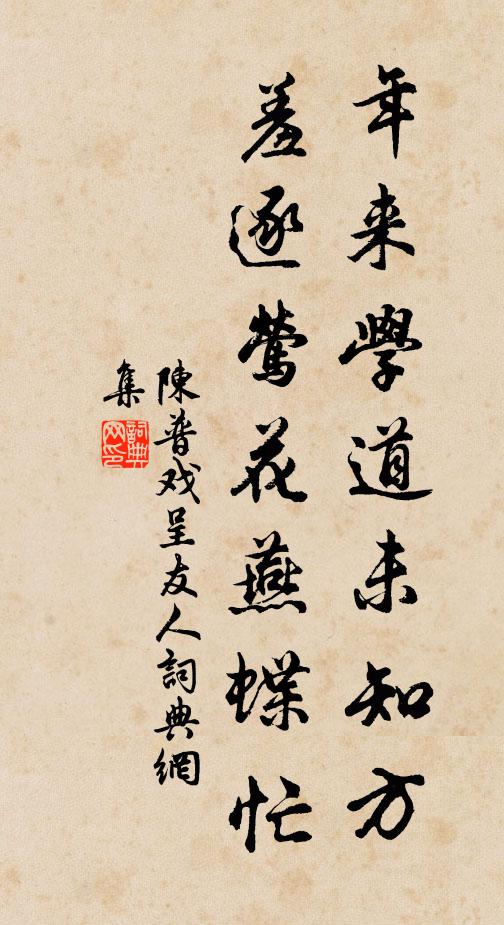 年来學道未知方
羞逐鶯花燕蝶忙
陳普戏呈友人詞典網
集
詞典
网印